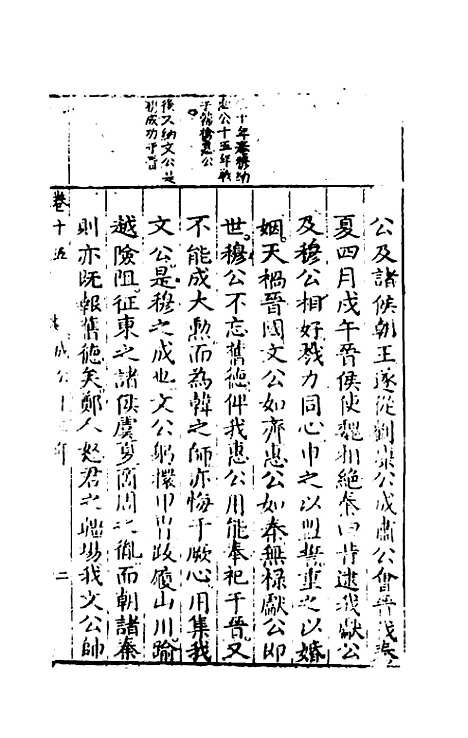 公及諸侯朝王遂從劉康公成肅公會晉侯伐秦
夏四月戊午晉侯使魏相絶秦曰昔逮我獻公
及穆公相好戮力同心申之以盟誓重之以婚
姻天禍晉國文公如齊惠公如秦無祿獻公即
世穆公不忘舊德俾我惠公用能奉祀于晉又
不能成大勳而為韓之師亦悔于厥心用集我
文公是穆之成也文公躬擐甲胄跋履山川踰
越險阻征東之諸侯虞夏商周之胤而朝諸秦
則亦既報舊德矣鄭人怒君之疆埸我文公帥
十年秦穆納
惠公十五年戰
于韓擒惠公
後又納文公是
成功于晉
卷十五
成公十三年
二